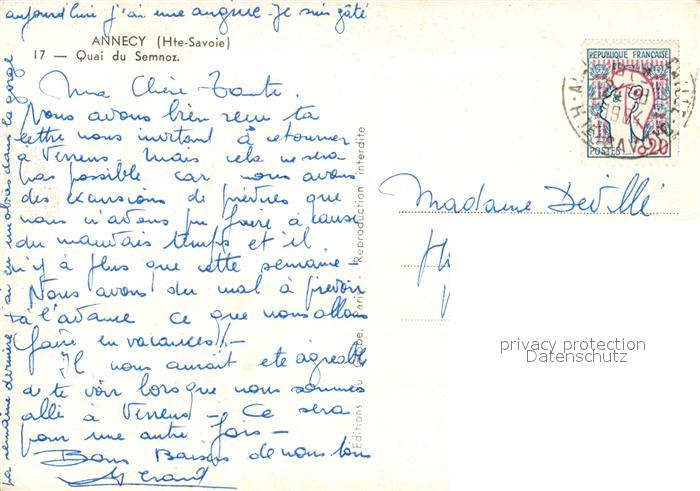 aujourd'hui j'ai une angine. Je suis gâté
ANNECY (Hte-Savoie)
17 — Quai du Semnoz.
Ma Chère Tante.
Nous avons bien reçu ta
lettre nous invitant à retourner
à Verrens mais cela ne sera
pas possible car nous avons
des excursions de prévues que
nous n'avons pu faire à cause
du mauvais temps et il
n'y à plus que cette semaine -
Nous avons du mal à prévoir
à l'avance ce que nous allons
faire en vacances! -
Il nous aurait eté agréable
de te voir lorsque nous sommes
allé à Verrens - Ce sera
pour une autre fois -
Bons Baisers de nous tous
la semaine dernière j'ai eu un abcès dans la gorge
Editions du Globe, Paris - Reproduction interdite
REPUBLIQUE FRANÇAISE
POSTES 0,20
Madame Devillé
privacy protection
Datenschutz